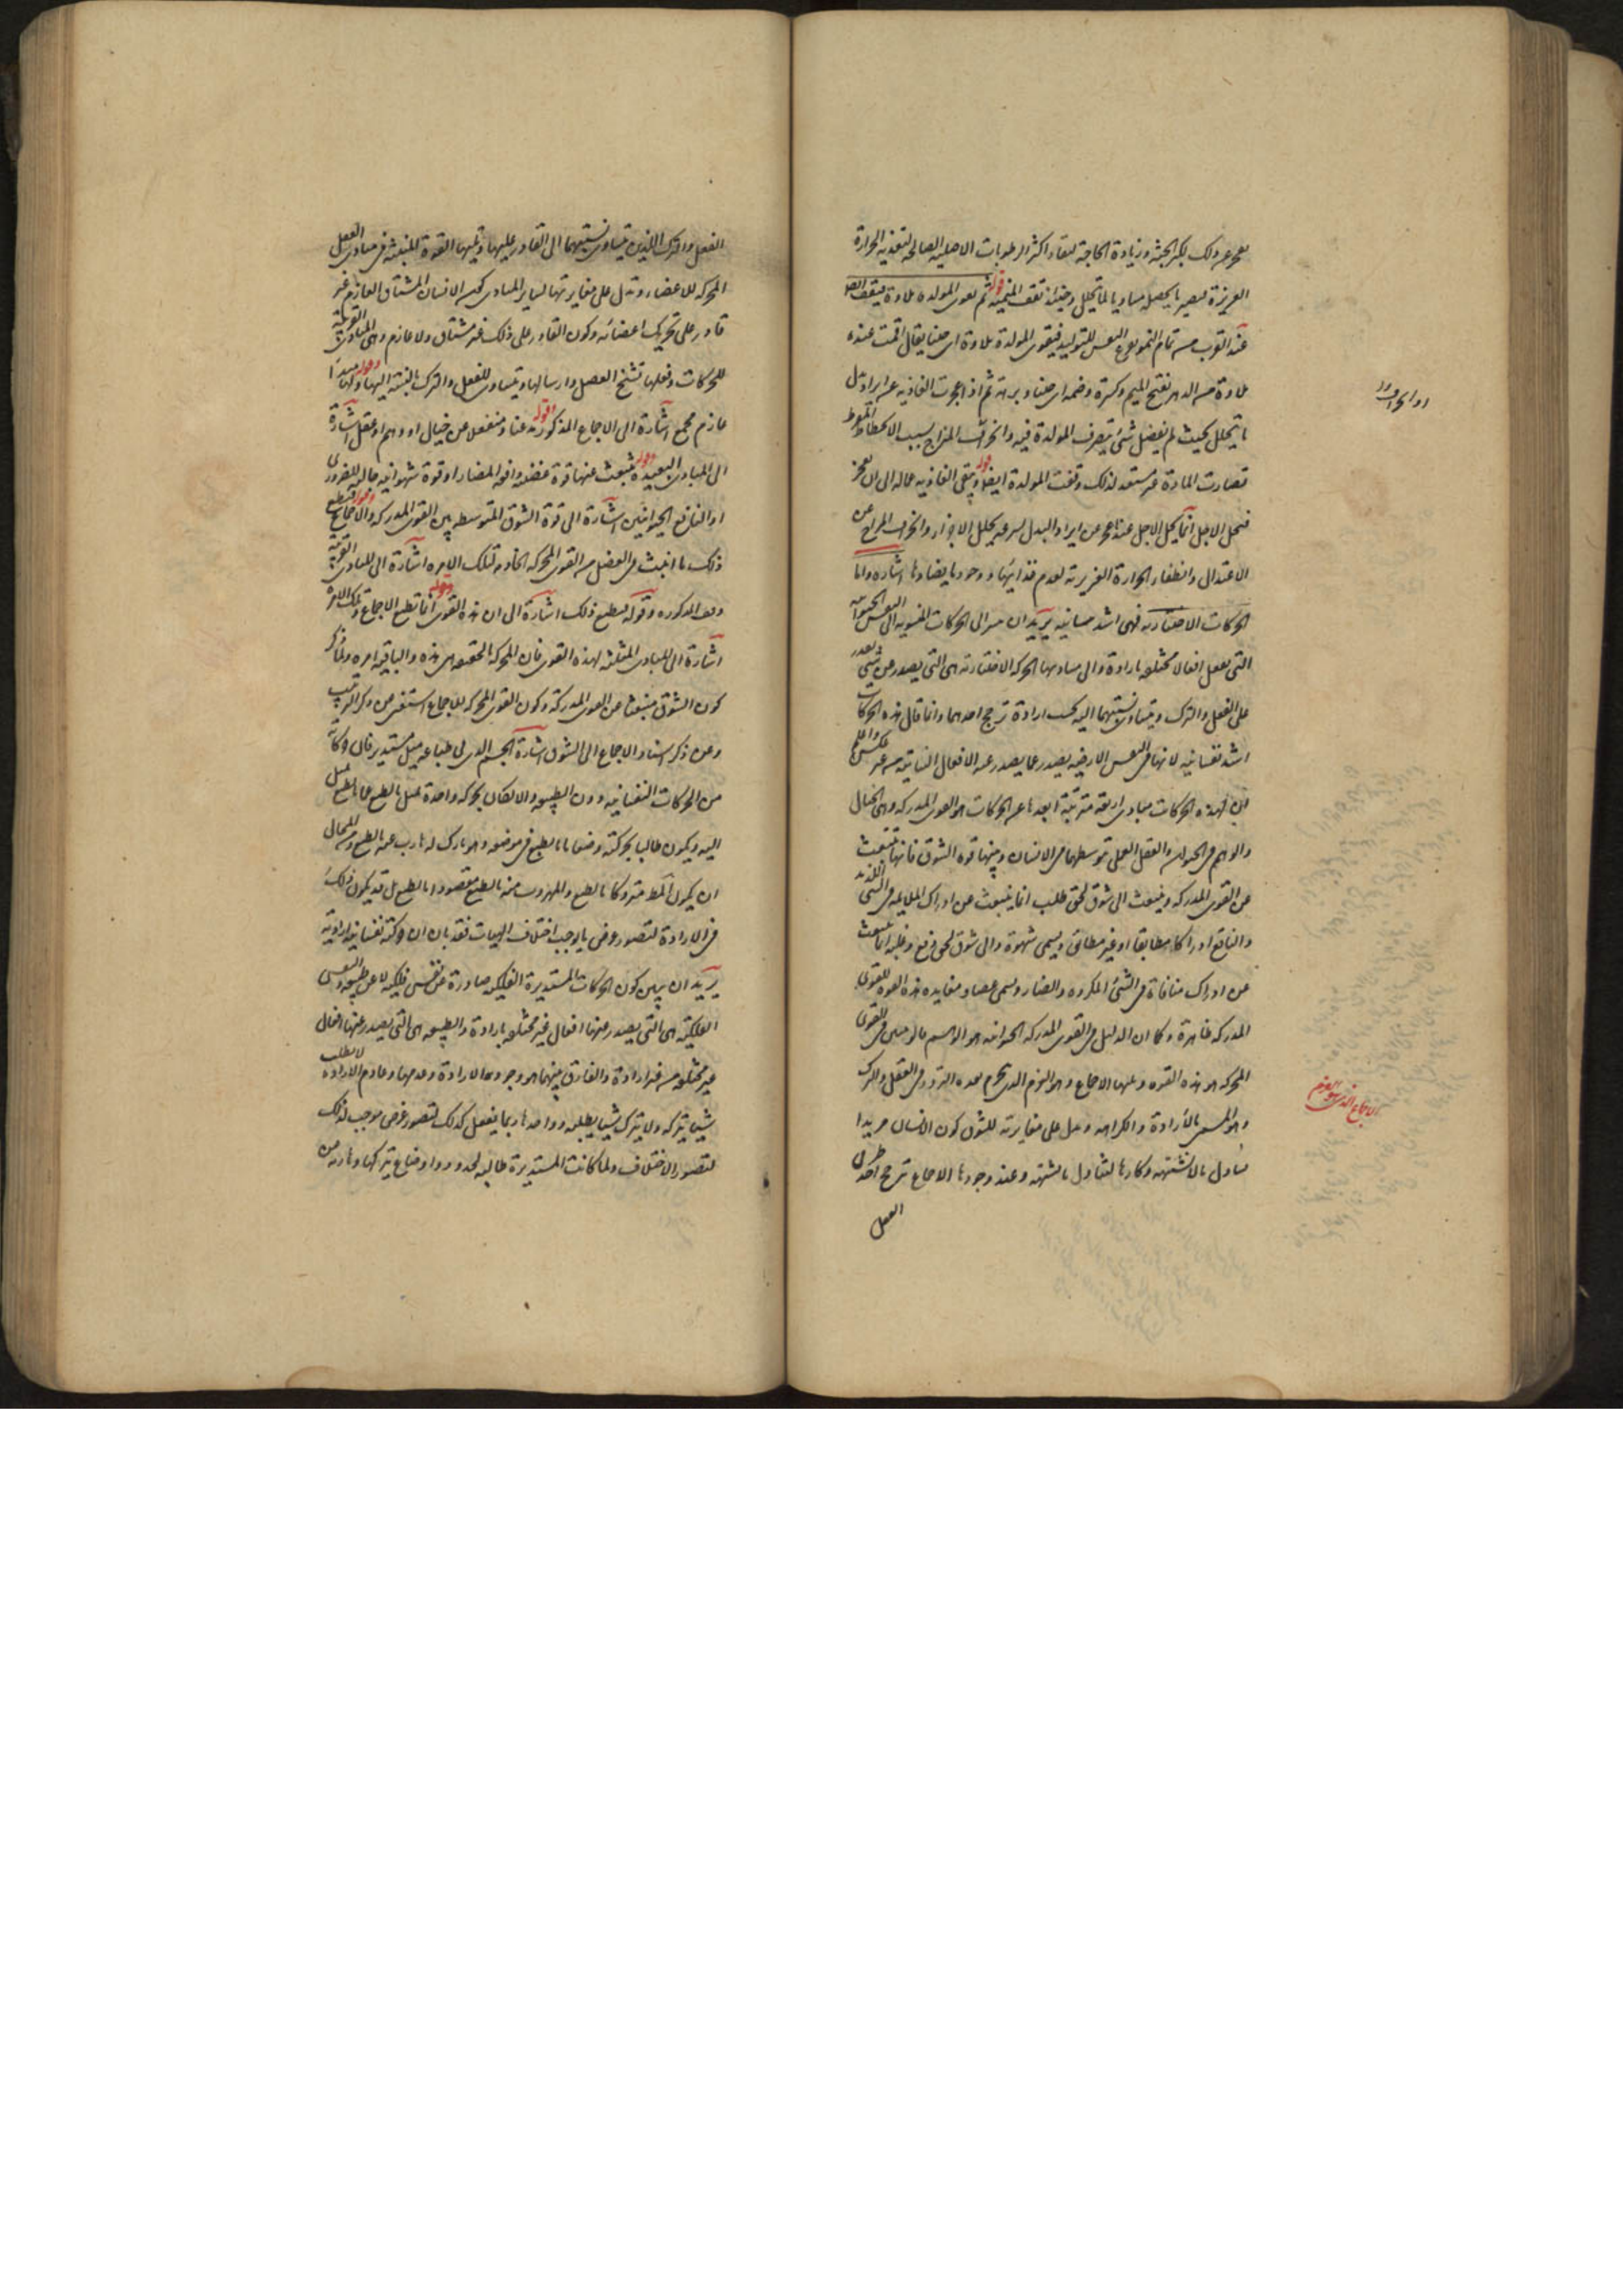 يعجز عن ذلك لكبر الجثة وزيادة الحاجة لنفاد اكثر الرطوبات الاصلية الصالحة لتغذية الحرارة
الغريزة فيصير ما يحصل مساويا لما يتحلل وحينئذ تقف المنمية قوله ثم تقوى المولدة ملاوة فيقف
عند القرب من تمام النمو تفرغ النفس للتوليد فتقوى المولدة ملاوة اى حينا يقال اقمت عنده
ملاوة من الدهر بفتح الميم وكسره وضمه اى حينا وبرهة ثم اذا عجزت الغاذية عن ايراد بدل
ما يتحلل بحيث لم يفضل شئ يتصرف المولدة فيه وانحرف المزاج بسبب الانحطاط المفرط
فصارت المادة غير مستعدة لذلك وقفت المولدة ايضا قوله وتبقى الغاذية عمالة الى ان تعجز
فيحل الاجل انما يحل الاجل عند عجز عن ايراد البدل لسرعة تحلل الاجزاء وانحراف المزاج عن
الاعتدال وانطفاء الحرارة الغريزية لعدم غذائها ووجود ما يضادها اشارة واما
الحركات الاختيارية فهى اشد نفسانية يريد ان يشير الى الحركات المنسوبة الى النفس الحيوانية
التى تفعل افعالا مختلفة بارادة والى مباديها الحركة الاختيارية هى التى يصدر عن شئ يقدر
على الفعل والترك ويتساوى نسبتهما اليه بحسب ارادة ترجح احدهما وانما قال هذه الحركات
اشد نفسانية لانها فى النفس الارضية يصدر عما يصدر عنه الافعال النباتية من غير عكس واعلم
ان لهذه الحركات مبادى اربعة مترتبة ابعدها عن الحركات هو القوى المدركة وهى الخيال
والوهم فى الحيوان والعقل العملى بتوسطهما فى الانسان ويليها قوة الشوق فانها تنبعث
عن القوى المدركة وينبعث الى شوق نحو طلب انما ينبعث عن ادراك الملايمة فى الشئ اللذيذ
والنافع ادراكا مطابقا او غير مطابق ويسمى شهوة والى شوق نحو دفع وغلبة انما تنبعث
عن ادراك منافاة فى الشئ المكروه والضار ويسمى غضبا ومغايرة هذه القوة للقوى
المدركة ظاهرة وكما ان الدليل فى القوى المدركة الحيوانية هو الوهم فالرئيس فى القوى
المحركة هو هذه القوة ويليها الاجماع وهو العزم الذى ينجزم بعد التردد فى الفعل والترك
وهو المسمى بالارادة والكراهة ويدل على مغايرته للشوق كون الانسان مريدا
لتناول ما لا يشتهيه وكارها لتناول ما يشتهيه وعند وجود هذا الاجماع ترجح احد طرفى
الفعل
الاجماع الذى هو العزم
الفعل والترك اللذين يتساوى نسبتهما الى القادر عليهما وتليها القوة المنبثة فى مبادى العضل
المحركة للاعضاء ويدل على مغايرتها لساير المبادى كون الانسان المشتاق العازم غير
قادر على تحريك اعضائه وكون القادر على ذلك غير مشتاق ولا عازم وهى المبادى القريبة
للحركات وفعلها تشنج العضل وارسالها ويتساوى للفعل والترك بالنسبة اليها قوله ولها مبدأ
عازم مجمع اشارة الى الاجماع المذكور قوله مذعنا ومنفعلا عن خيال او وهم او عقل اشارة
الى المبادى البعيدة قوله تنبعث عنها قوة غضبية دافعة للضار او قوة شهوانية جالبة للضرورى
او النافع الحيوانيين اشارة الى قوة الشوق المتوسطة بين القوى المدركة والاجماع قوله فيطيع
ذلك ما انبث فى العضل من القوى المحركة الخادمة لتلك الآمرة اشارة الى المبادى القريبة
وقد المذكورة وقوله فيطيع ذلك اشارة الى ان هذه القوى انما تطيع الاجماع قوله وتلك الآمرة
اشارة الى المبادى المثلثة لهذه القوى فان المحركة بالحقيقة هى هذه والباقية آمرة ولما ذكر
كون الشوق منبعثا عن القوى المدركة وكون القوى المحركة للاجماع استغنى عن ذكر الترتيب
وعن ذكر اسناد الاجماع الى الشوق اشارة الجسم الذى فى طباعه ميل مستدير فان حركاته
من الحركات النفسانية دون الطبيعية والا لكان بحركة واحدة يميل بالطبع عما يميل بالطبع
اليه ويكون طالبا بحركته وضعا ما بالطبع فى موضعه وهو تارك له هارب عنه بالطبع ومن المحال
ان يكون المط متروكا بالطبع والمهروب منه بالطبع مقصودا بالطبع بل قد يكون ذلك
فى الارادة لتصور غرض ما يوجب اختلاف الهيات فقد بان ان حركته نفسانية ارادية
يريد ان يبين كون الحركات المستديرة الفلكية صادرة عن نفس فلكية لا عن طبيعة والنفس
الفلكية هى التى يصدر عنها افعال غير مختلفة بارادة والطبيعة هى التى يصدر عنها افعال
غير مختلفة من غير ارادة والفارق بينهما هو وجود الارادة وعدمها وعادم الارادة لا يطلب
شيئا يتركه ولا يترك شيئا يطلبه وواجدها ربما يفعل كذلك لتصور غرض موجب لذلك
لتصور الاختلاف ولما كانت المستديرة طالبة لحدود واوضاع يتركها وهاربة من